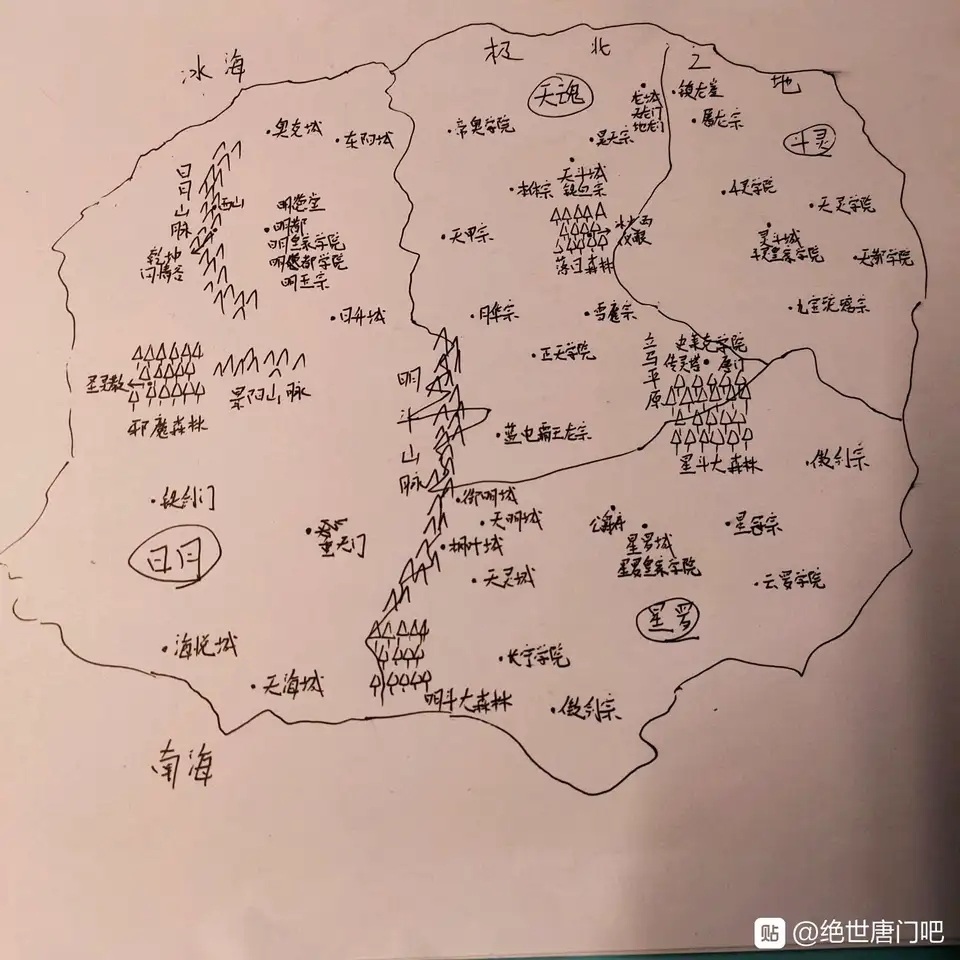 冰海
极北之地
天魂
斗灵
日月
星罗
奥克城
东阳城
日月山脉
西山
明德堂
明都
明都皇家学院
明玉宗
乾坤问情谷
日升城
圣灵教
邪魔森林
景阳山脉
帝奥学院
龙城
天龙门
地龙门
昊天宗
天斗城
本体宗
落日森林
天甲宗
月华宗
雪魔宗
正天学院
蓝电霸王龙宗
镇龙崖
屠龙宗
斗灵学院
天灵学院
灵斗城
斗灵皇家学院
天都学院
立马平原
史莱克学院
传灵塔
唐门
星斗大森林
明斗山脉
铁剑门
天门
海悦城
天海城
天明城
枫叶城
天灵城
长宁学院
明斗大森林
傲剑宗
星罗城
星罗皇家学院
星冠宗
云罗学院
傲剑宗
南海
贴 @绝世唐门吧